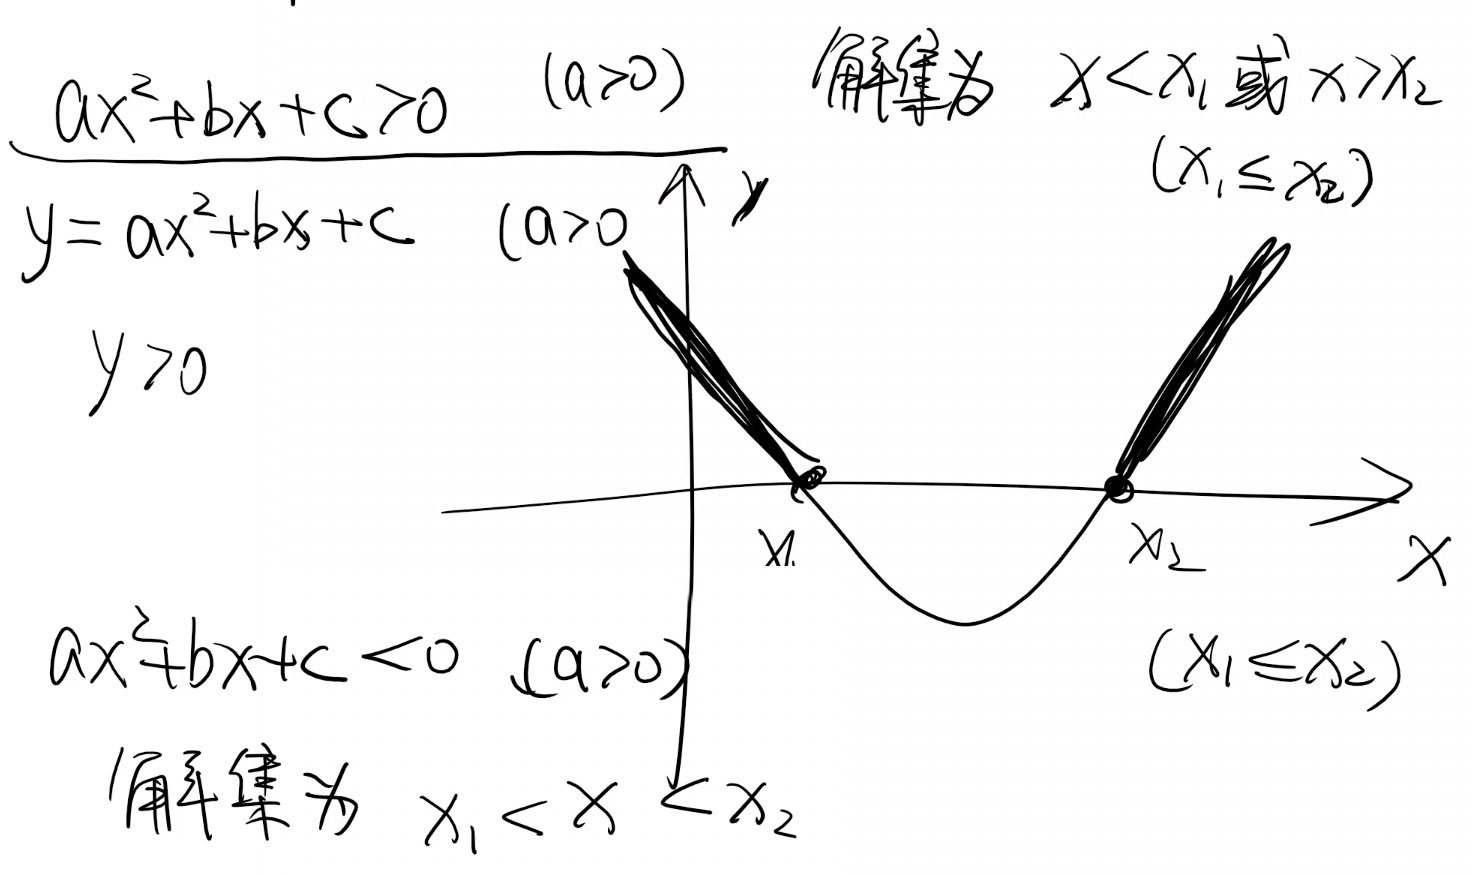 ax²+bx+c>0 (a>0)
解集为 x<x₁或x>x₂
(x₁≤x₂)
y=ax²+bx+c (a>0
y>0
y
x₁
x₂
x
(x₁≤x₂)
ax²+bx+c<0 (a>0)
解集为 x₁<x<x₂